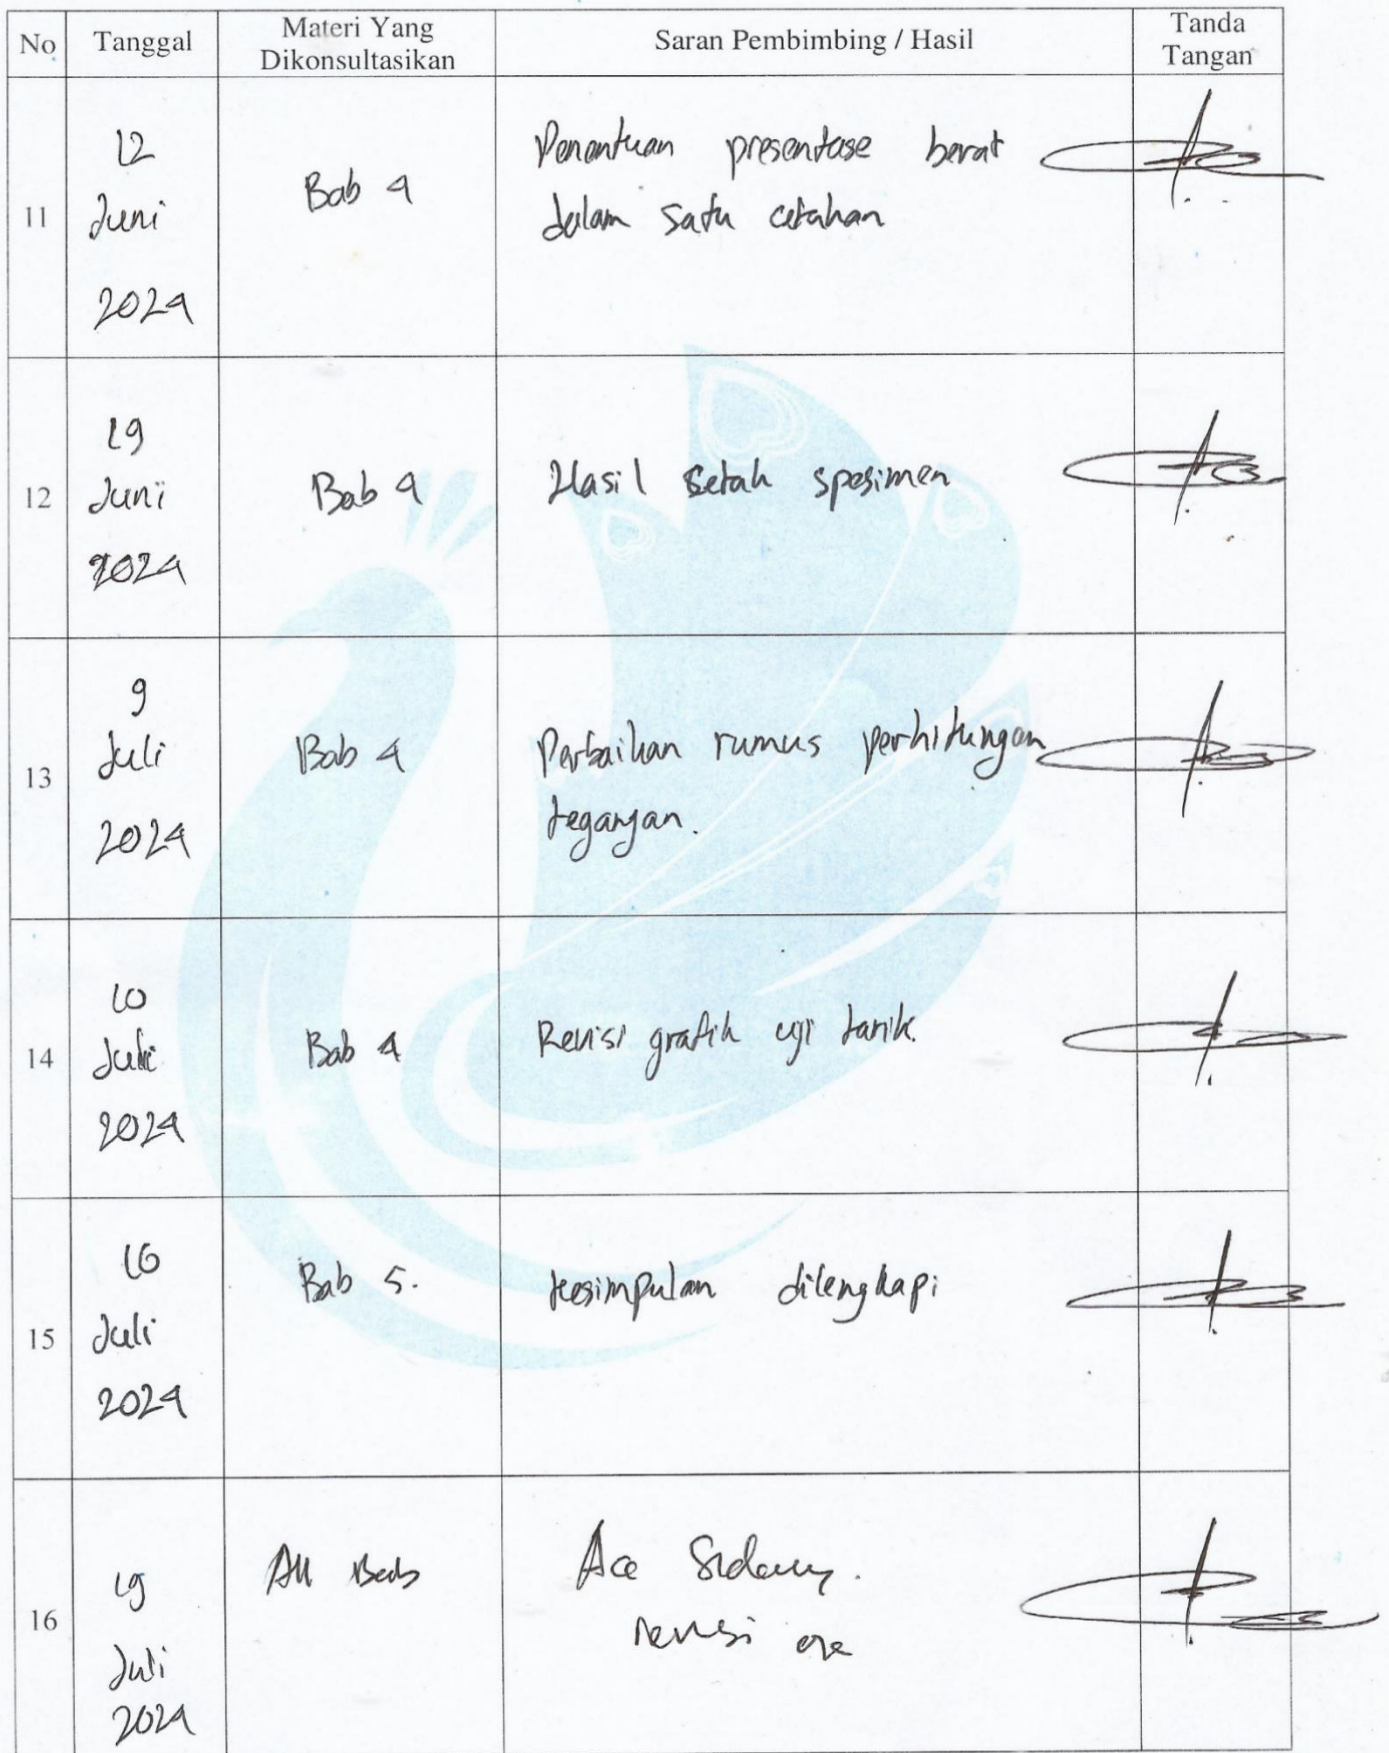 No Tanggal Materi Yang Dikonsultasikan Saran Pembimbing / Hasil Tanda Tangan
11
12
Juni
2024
Bab 4
Penentuan presentase berat
dalam satu cetakan
12
19
Juni
2024
Bab 4
Hasil Setah spesimen
13
9
Juli
2024
Bab 4
Perbaikan rumus perhitungan
tegangan.
14
10
Juli
2024
Bab 4
Revisi grafik uji tarik.
15
16
Juli
2024
Bab 5.
kesimpulan dilengkapi
16
19
Juli
2024
All Bab
Acc Sidang.
revisi